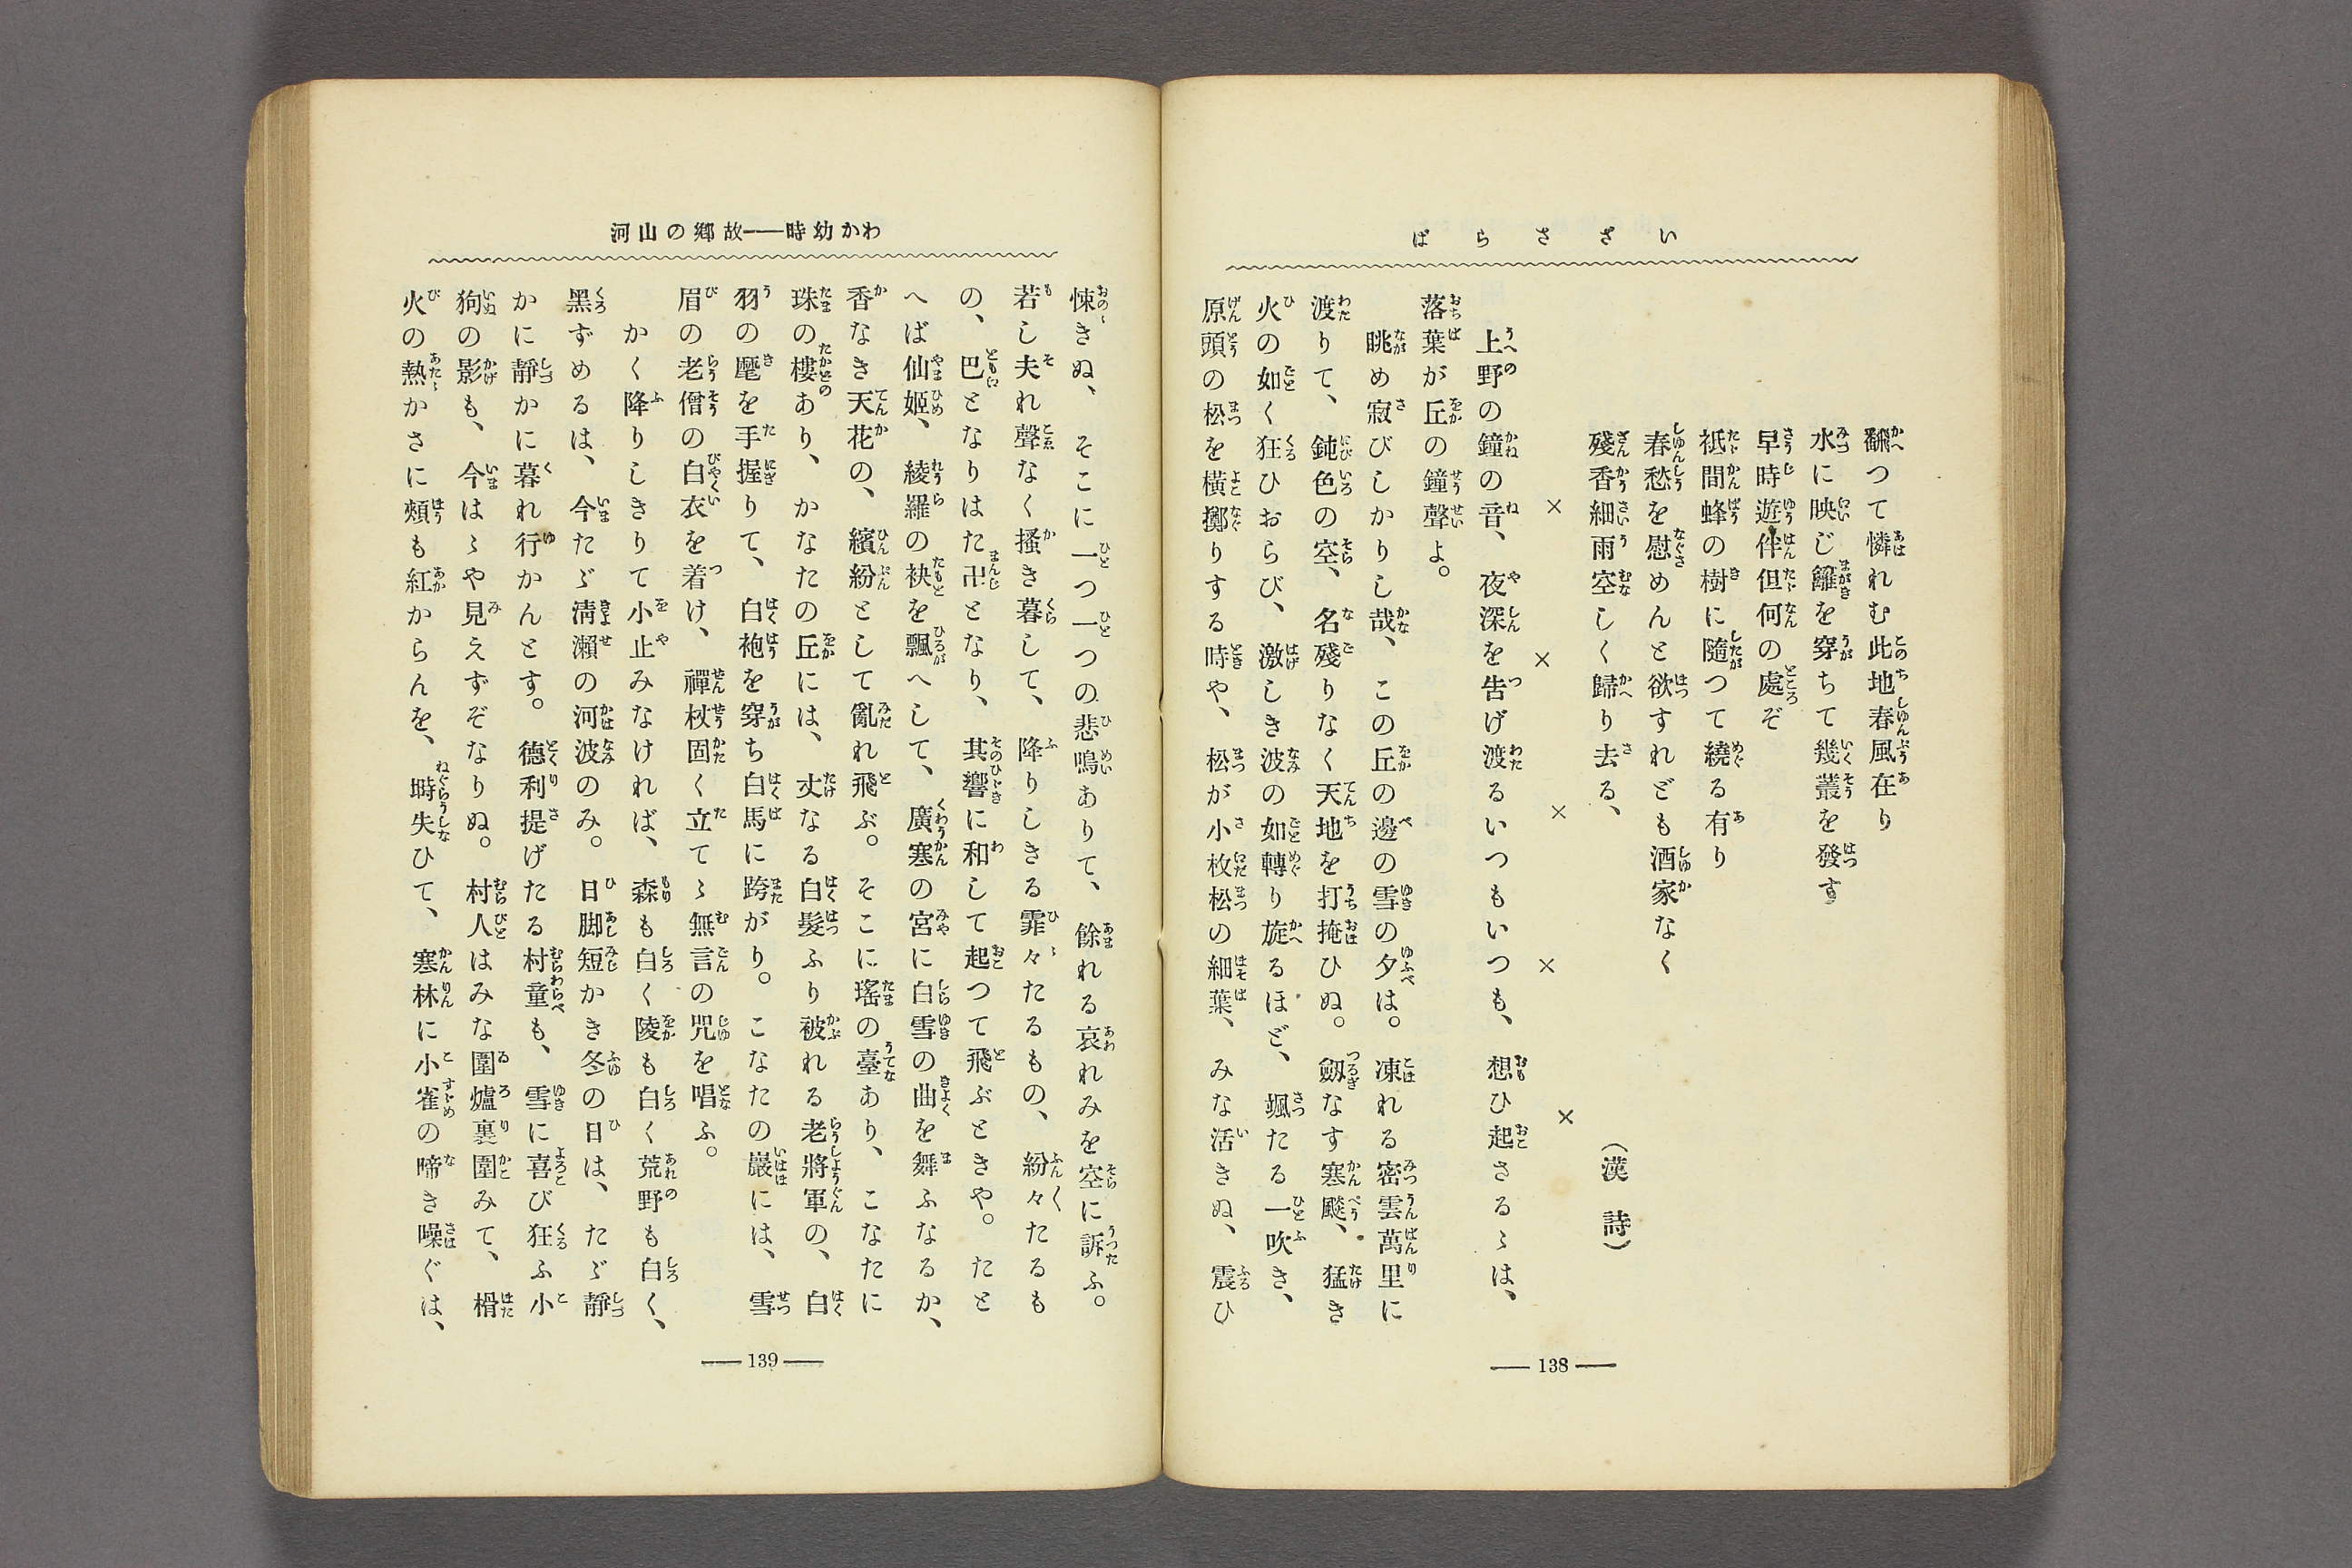 いさゞさらば
翻つて憐れむ此地春風在り
水に映じ籬を穿ちて幾叢を發す
早時遊伴但何の處ぞ
祇間蜂の樹に隨つて繞る有り
春愁を慰めんと欲すれども酒家なく
殘香細雨空しく歸り去る、
(漢詩)
× × × × ×
上野の鐘の音、夜深を告げ渡るいつもいつも、想ひ起さるゝは、
落葉が丘の鐘聲よ。
眺め寂びしかりし哉、この丘の邊の雪の夕は。凍れる密雲萬里に
渡りて、鈍色の空、名殘りなく天地を打掩ひぬ。劔なす寒颷、猛き
火の如く狂ひおらび、激しき波の如轉り旋るほど、颯たる一吹き、
原頭の松を橫擲りする時や、松が小枚松の細葉、みな活きぬ、震ひ
— 138 —
わか幼時——故鄕の山河
悚きぬ、そこに一つ一つの悲鳴ありて、餘れる哀れみを空に訴ふ。
若し夫れ聲なく搔き暮して、降りしきる霏々たるもの、紛々たるも
の、巴となりはた卍となり、其響に和して起つて飛ぶときや。たと
へば仙姬、綾羅の袂を飄へして、廣寒の宮に白雪の曲を舞ふなるか、
香なき天花の、繽紛として亂れ飛ぶ。そこに瑤の臺あり、こなたに
珠の樓あり、かなたの丘には、丈なる白髮ふり被れる老將軍の、白
羽の麾を手握りて、白袍を穿ち白馬に跨がり。こなたの巖には、雪
眉の老僧の白衣を着け、禪杖固く立てゝ無言の咒を唱ふ。
かく降りしきりて小止みなければ、森も白く陵も白く荒野も白く、
黑ずめるは、今たゞ淸瀨の河波のみ。日脚短かき冬の日は、たゞ靜
かに靜かに暮れ行かんとす。德利提げたる村童も、雪に喜び狂ふ小
狗の影も、今はゝや見えずぞなりぬ。村人はみな圍爐裏圍みて、榾
火の熱かさに頰も紅からんを、塒失ひて、寒林に小雀の啼き噪ぐは、
— 139 —